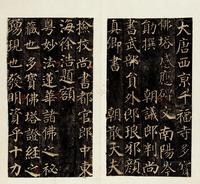 大唐西京千福寺多寶
佛塔感應碑文南陽岑
勛撰 朝議郎判尚
書武部員外郎琅邪顏
真卿書 朝散大夫
撿挍尚書都官郎中東
海徐浩題額
粵妙法蓮華諸佛之秘
藏也多寶佛塔證經之
踴現也發明資乎十力